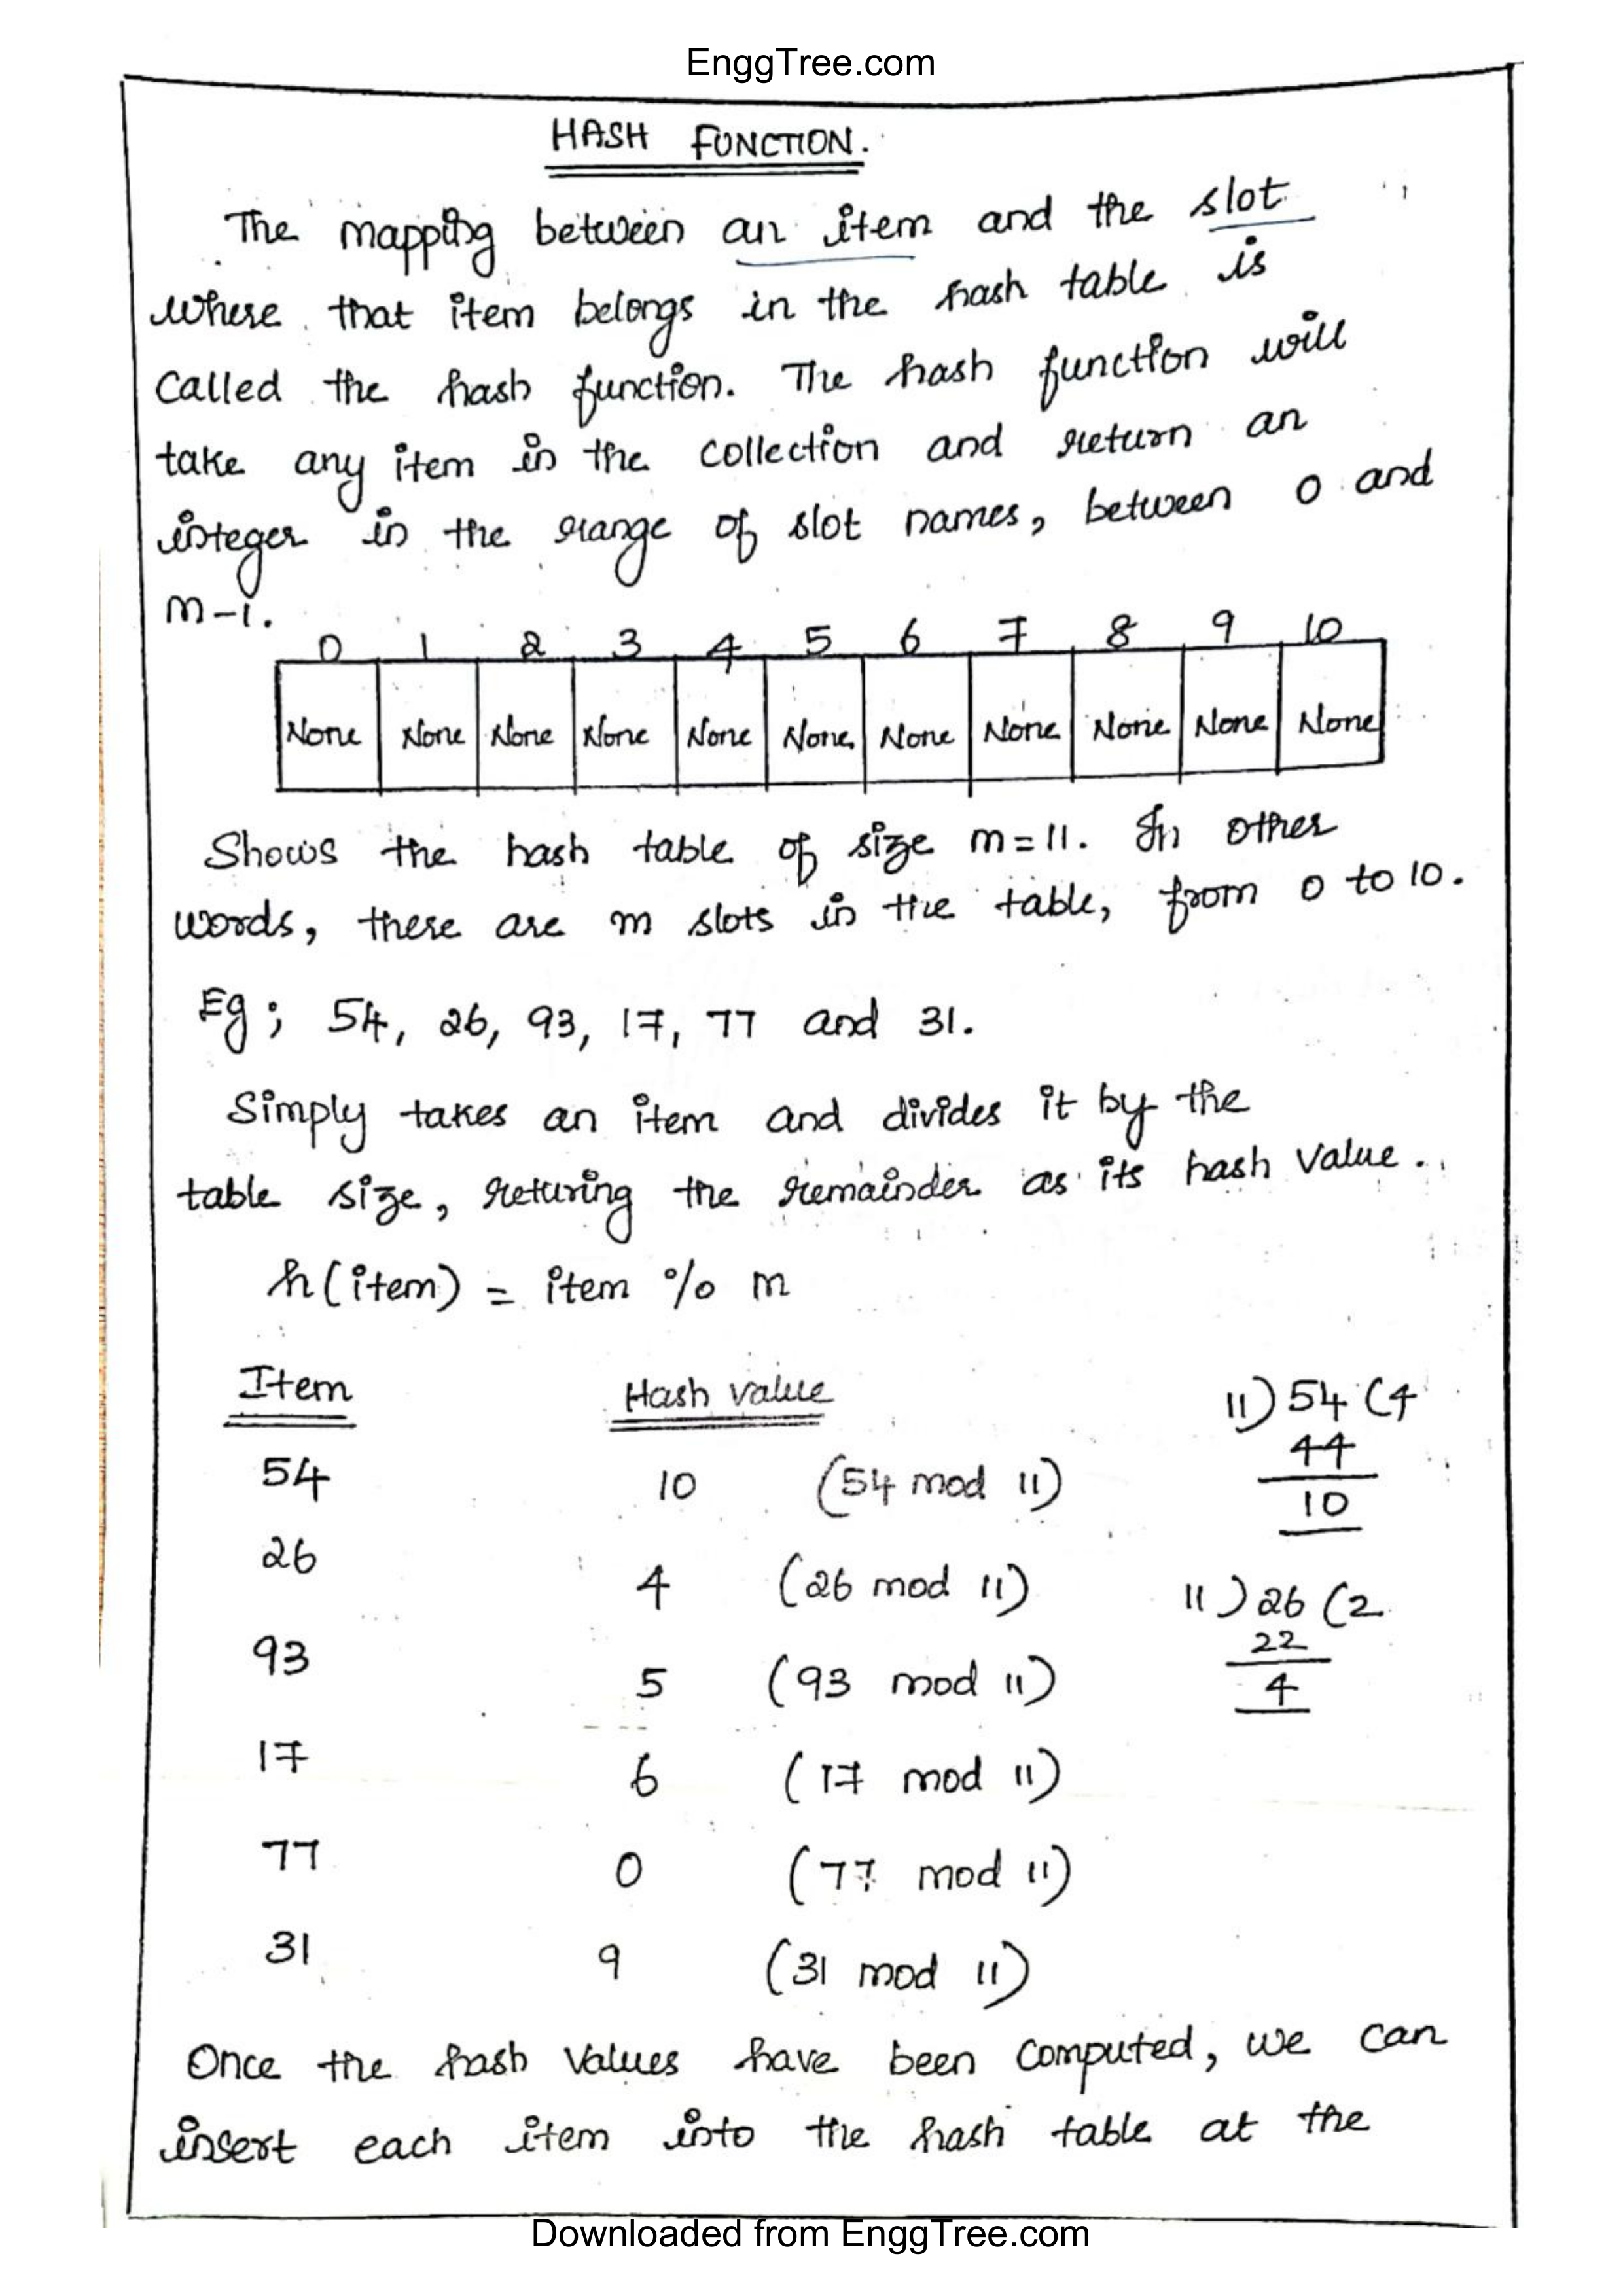 EnggTree.com
HASH FUNCTION.
The mapping between an item and the slot
where that item belongs in the hash table is
Called the hash function. The hash function will
take any item in the collection and return an
integer in the range of slot names, between 0 and
m-1.
0 1 2 3 4 5 6 7 8 9 10
None None None None None None None None None None None
Shows the hash table of size m=11. In other
words, there are m slots in the table, from 0 to 10.
Eg; 54, 26, 93, 17, 77 and 31.
Simply takes an item and divides it by the
table size, returing the remainder as its hash value.
h(item) = item % m
Item Hash value 11) 54 (4
44
54 10 (54 mod 11) 10
26 4 (26 mod 11) 11) 26 (2
22
93 5 (93 mod 11) 4
17 6 (17 mod 11)
77 0 (77 mod 11)
31 9 (31 mod 11)
Once the hash values have been computed, we can
insert each item into the hash table at the
Downloaded from EnggTree.com